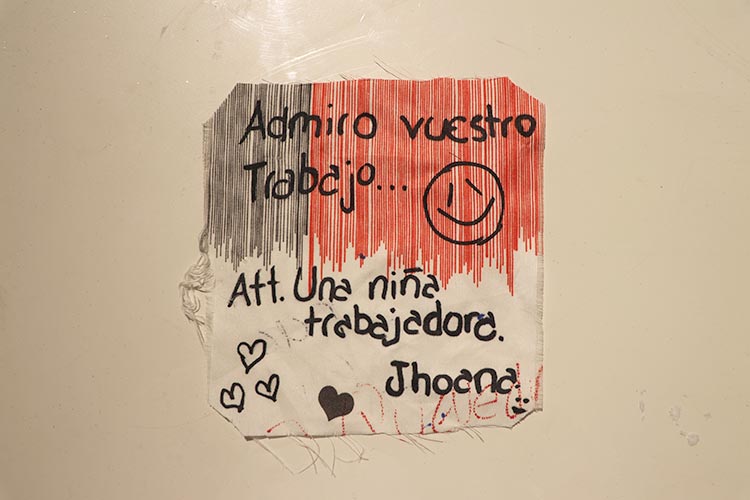 Admiro vuestro
Trabajo...
Att. Una niña
trabajadora.
Jhoana